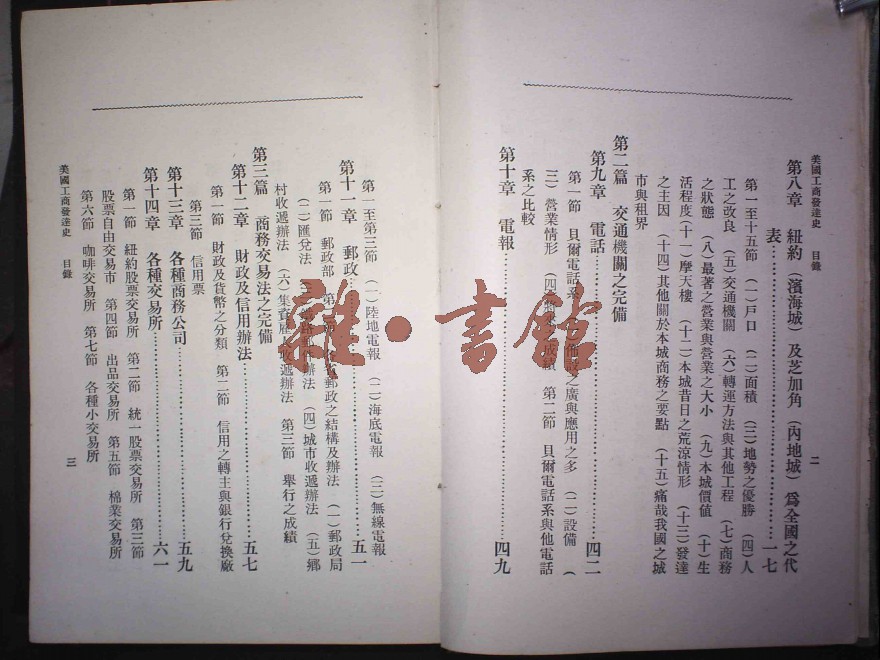 美國工商發達史 目錄 二
第八章 紐約（濱海城）及芝加角（內地城）爲全國之代
表……一七
第一至十五節 （一）戶口 （二）面積 （三）地勢之優勝 （四）人
工之改良 （五）交通機關 （六）轉運方法與其他工程 （七）商務
之狀態 （八）最著之營業與營業之大小 （九）本城價值 （十）生
活程度（十一）摩天樓 （十二）本城昔日之荒涼情形 （十三）發達
之主因 （十四）其他關於本城商務之要點 （十五）痛哉我國之城
市與租界
第二篇 交通機關之完備
第九章 電話……四二
第一節 貝爾電話系 之廣與應用之多 （二）設備 （
三）營業情形 （四） 成績 第二節 貝爾電話系與他電話
系之比較
第十章 電報……四九
第一至第三節 （一）陸地電報 （二）海底電報 （三）無線電報
第十一章 郵政……五一
第一節 郵政部 第二節 郵政之結構及辦法 （一）郵政局
（二）匯兌法 郵件辦法 （四）城市收遞辦法 （五）鄉
村收遞辦法 （六）集資 收遞辦法 第三節 舉行之成績
第三篇 商務交易法之完備
第十二章 財政及信用辦法……五七
第一節 財政及貨幣之分類 第二節 信用之轉主與銀行兌換廠
第三節 信用票
第十三章 各種商務公司……五九
第十四章 各種交易所……六一
第一節 紐約股票交易所 第二節 統一股票交易所 第三節
股票自由交易市 第四節 出品交易所 第五節 棉業交易所
第六節 咖啡交易所 第七節 各種小交易所
美國工商發達史 目錄 三
雜·書館